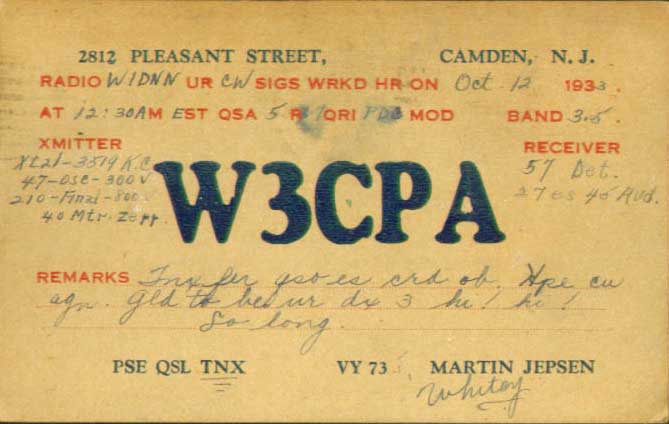 2812 PLEASANT STREET, CAMDEN, N. J.
RADIO W1DNN UR CW SIGS WRKD HR ON Oct. 12 1933.
AT 12:30AM EST QSA 5 R 7 QRI PDC MOD BAND 3.5.
XMITTER RECEIVER
XL21-3519 K.C 57 Det.
47-OSC-300V 27 es 45 Aud.
210-Final-800V
40 Mtr. Zepp.
W3CPA
REMARKS Tnx fer qso es crd ob. Hpe cu
agn. Gld to be ur dx 3 hi! hi!
So long.
PSE QSL TNX VY 73 MARTIN JEPSEN
Whitey